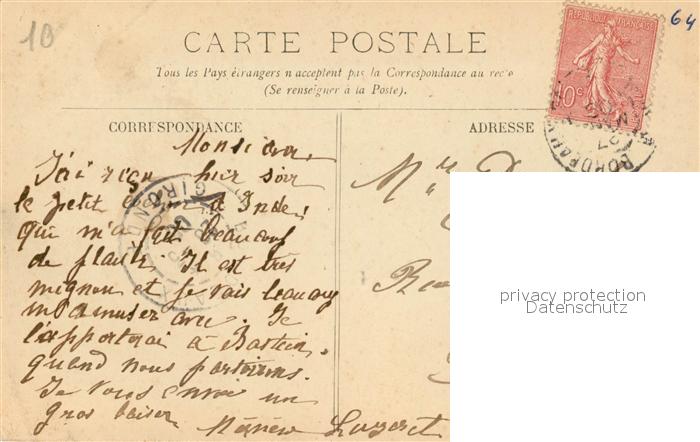 1B
64
CARTE POSTALE
Tous les Pays étrangers n'acceptent pas la Correspondance au recto
(Se renseigner à la Poste).
REPUBLIQUE FRANÇAISE
10c
BORDEAUX
27
CORRESPONDANCE
ADRESSE
GIRONDE
Monsieur
J'ai reçu hier soir
le petit d'Inde
qui m'a fait beaucoup
de plaisir. Il est très
mignon et je vais beaucoup
m'amuser avec. Je
l'apporterai à
quand nous partirons.
Je vous envoie un
gros baiser.
Lazaret
Mr
privacy protection
Datenschutz